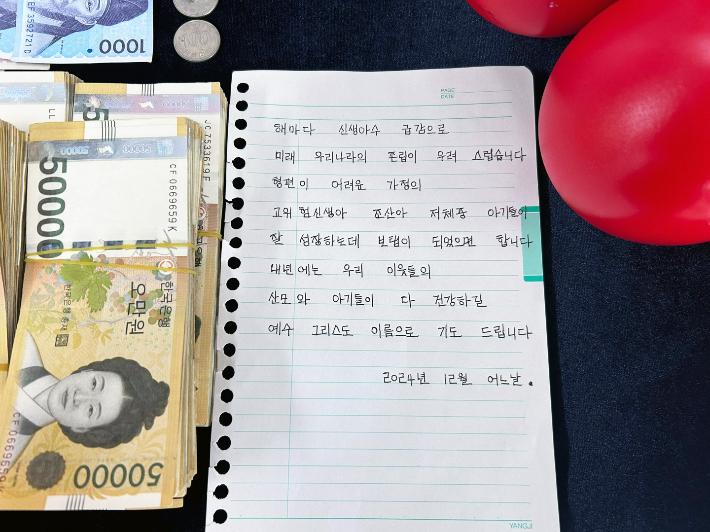 EF 3592721 D
1000
100
50000
JC 7533619 F
CF 0669659 K
50000
한국은행
오만원
한국은행 총재
CF 0669659
50000
PAGE
DATE
해마다 신생아수 급감으로
미래 우리나라의 존립이 우려 스럽습니다
형편이 어려운 가정의
고위험신생아 조산아 저체중 아기들이
잘 성장하는데 보탬이 되었으면 합니다
내년에는 우리 이웃들의
산모와 아기들이 다 건강하길
예수 그리스도 이름으로 기도 드립니다
2024년 12월 어느날.
YANGJI